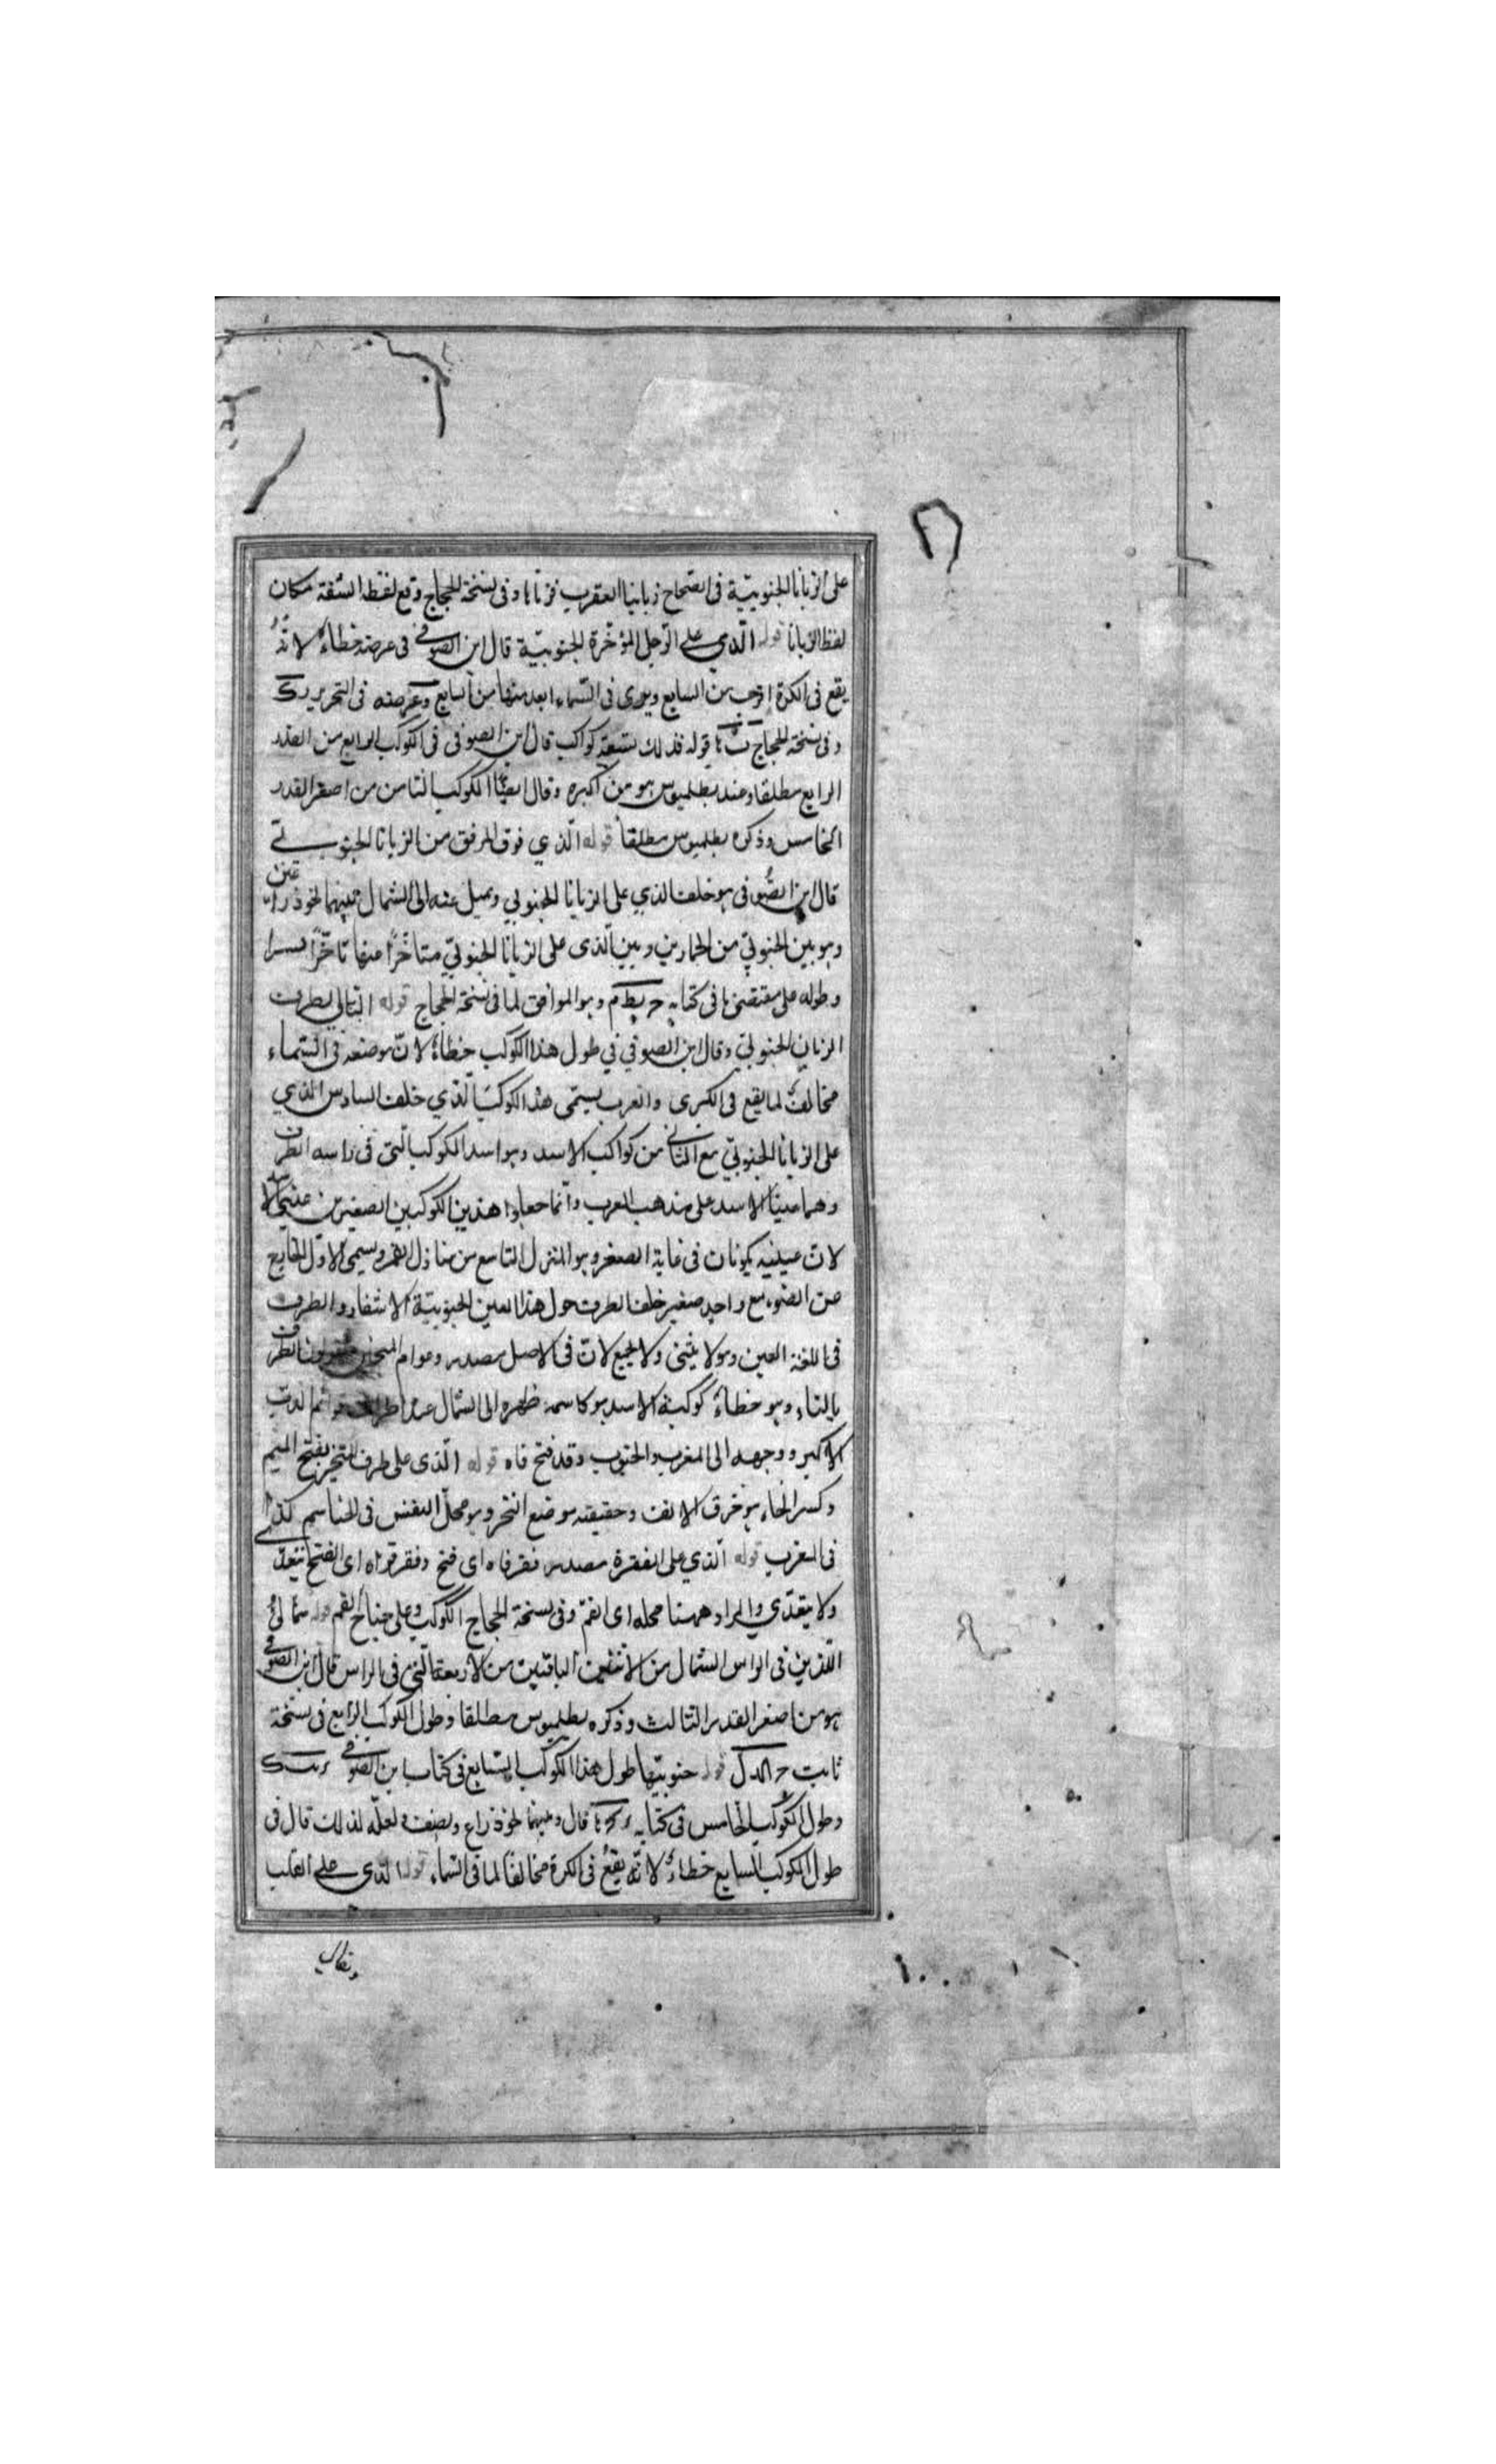 على الزبانا الجنوبيّة فى الصحاح زبانيا العقرب قرناها و فى نسخة الحجاج وقع لفظ الشفة مكان
لفظ الزبانا قوله الّذي على الرّجل المؤخّرة الجنوبيّة قال ابن الصوفى فى عرضه خطاء لانّه
يقع فى الكرة اقرب من السابع ويرى فى السّماء ابعد منها من السابع وعرضه فى التحرير
و فى نسخة الحجاج قوله فذلك تسعة كواكب قال ابن الصوفى فى الكوكب الرابع من القدر
الرابع مطلقا وعند بطلميوس هو من اكبره وقال ايضًا الكوكب الثامن من اصغر القدر
الخامس وذكره بطلميوس مطلقا قوله الّذي فوق المرفق من الزبانا الجنوبىّ
قال ابن الصّوفى هو خلف الذي على الزبانا الجنوبي ويميل عنه الى الشمال بينهما نحو ذراعين
وهو بين الجنوبيّ من الحمارين وبين الّذى على الزبانا الجنوبيّ متاخّرًا عنها تاخّرًا يسيرا
وطوله على مقتضى ما فى كتابه وهو الموافق لما فى نسخة الحجاج قوله التالي لطرف
الزبان الجنوبيّ وقال ابن الصوفي في طول هذا الكوكب خطاء لانّ موضعه فى السّماء
مخالف لما يقع فى الكرى والعرب يسمّى هذا الكوكب الّذي خلف السادس الذي
على الزبانا الجنوبيّ مع الثاني من كواكب الاسد وهو اسد الكوكب الّتى فى راسه الطرف
وهما عينا الاسد على مذهب العرب وانّما جعلوا هذين الكوكبين الصغيرين عيني الاسد
لانّ عينيه يكونان فى غاية الصغر وهو المنزل التاسع من منازل القمر ويسمى الاوّل الخارج
عن الضوء مع واحد صغير خلف الطرف حول هذا العين الجنوبيّة الاشفار والطرف
فى اللغة العين وهو لا يثنى ولا يجمع لانّ فى الاصل مصدر وعوام المنجمين يقولون الطرف
بالتاء وهو خطاء كوكبة الاسد هو كاسمه ظهره الى الشمال عند اطراف قوائم الدبّ
الاكبر ووجهه الى المغرب والجنوب وقد فتح فاه قوله الّذى على طرف المنخر بفتح الميم
وكسر الخاء هو خرق الانف وحقيقته موضع النخر وهو محلّ النفس فى الخياشيم كذا
فى المغرب قوله الّذي على الفغرة مصدر فغر فاه اى فتح وفغر فواه اى الفتح يتعدّى
ولا يتعدّي والمراد ههنا محله اى الفمّ وفى نسخة الحجاج الكوكب وعلى جناح الفم قوله شمالىّ
اللّذين فى الراس الشمال من الاثنين الباقيين من الاربعة الّتى فى الراس قال ابن الصّوفى
هو من اصغر القدر الثالث وذكره بطلميوس مطلقا وطول الكوكب الرابع فى نسخة
ثابت قوله جنوبيّها طول هذا الكوكب السّابع فى كتاب ابن الصّوفى
وطول الكوكب الخامس فى كتابه قال وبينهما نحو ذراع ونصف ولعلّه لذلك قال فى
طول الكوكب السابع خطاء لانّه يقع فى الكرة مخالفا لما فى السّماء قوله الّذى على القلب
ويقال